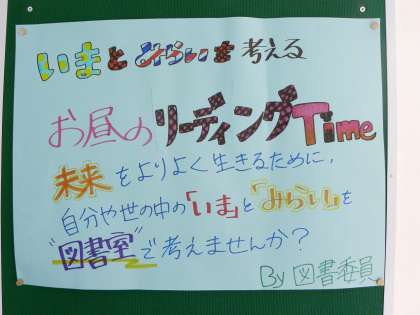 いまとみらいを考える
お昼のリーディングTime
未来をよりよく生きるために、
自分や世の中の「いま」と「みらい」を
"図書室"で考えませんか？
By 図書委員